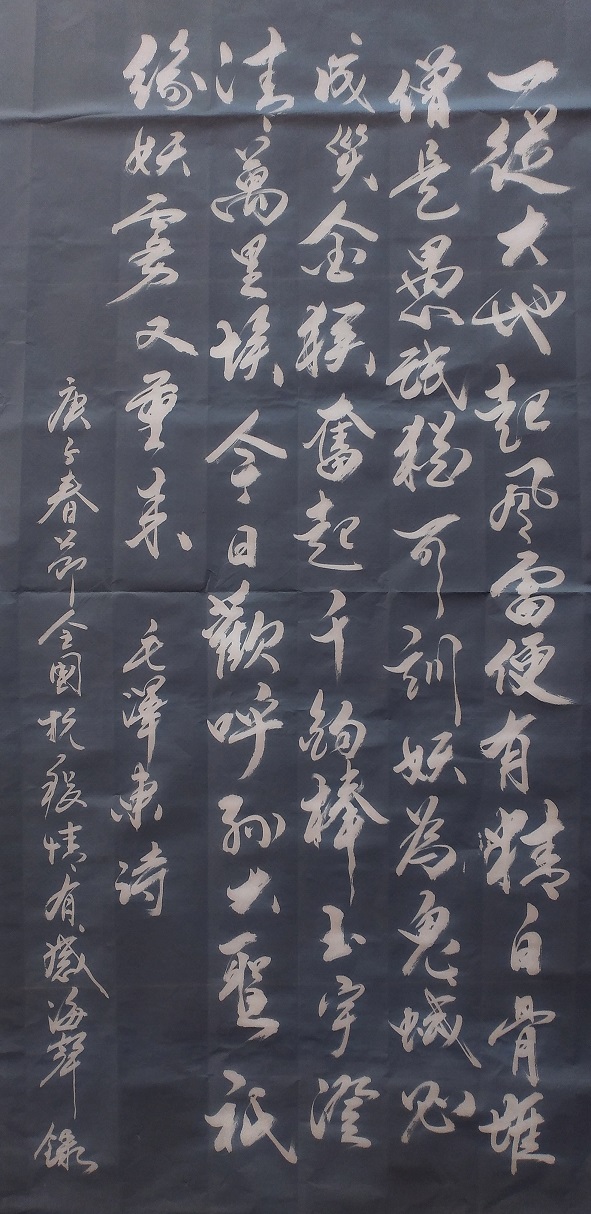 一從大地起风雷便有精白骨堆
僧是愚氓猶可訓妖為鬼蜮必
成災金猴奮起千鈞棒玉宇澄
清萬里埃今日歡呼孫大聖祇
緣妖霧又重来 毛澤東詩
庚子春節全國抗疫情有感海聲錄